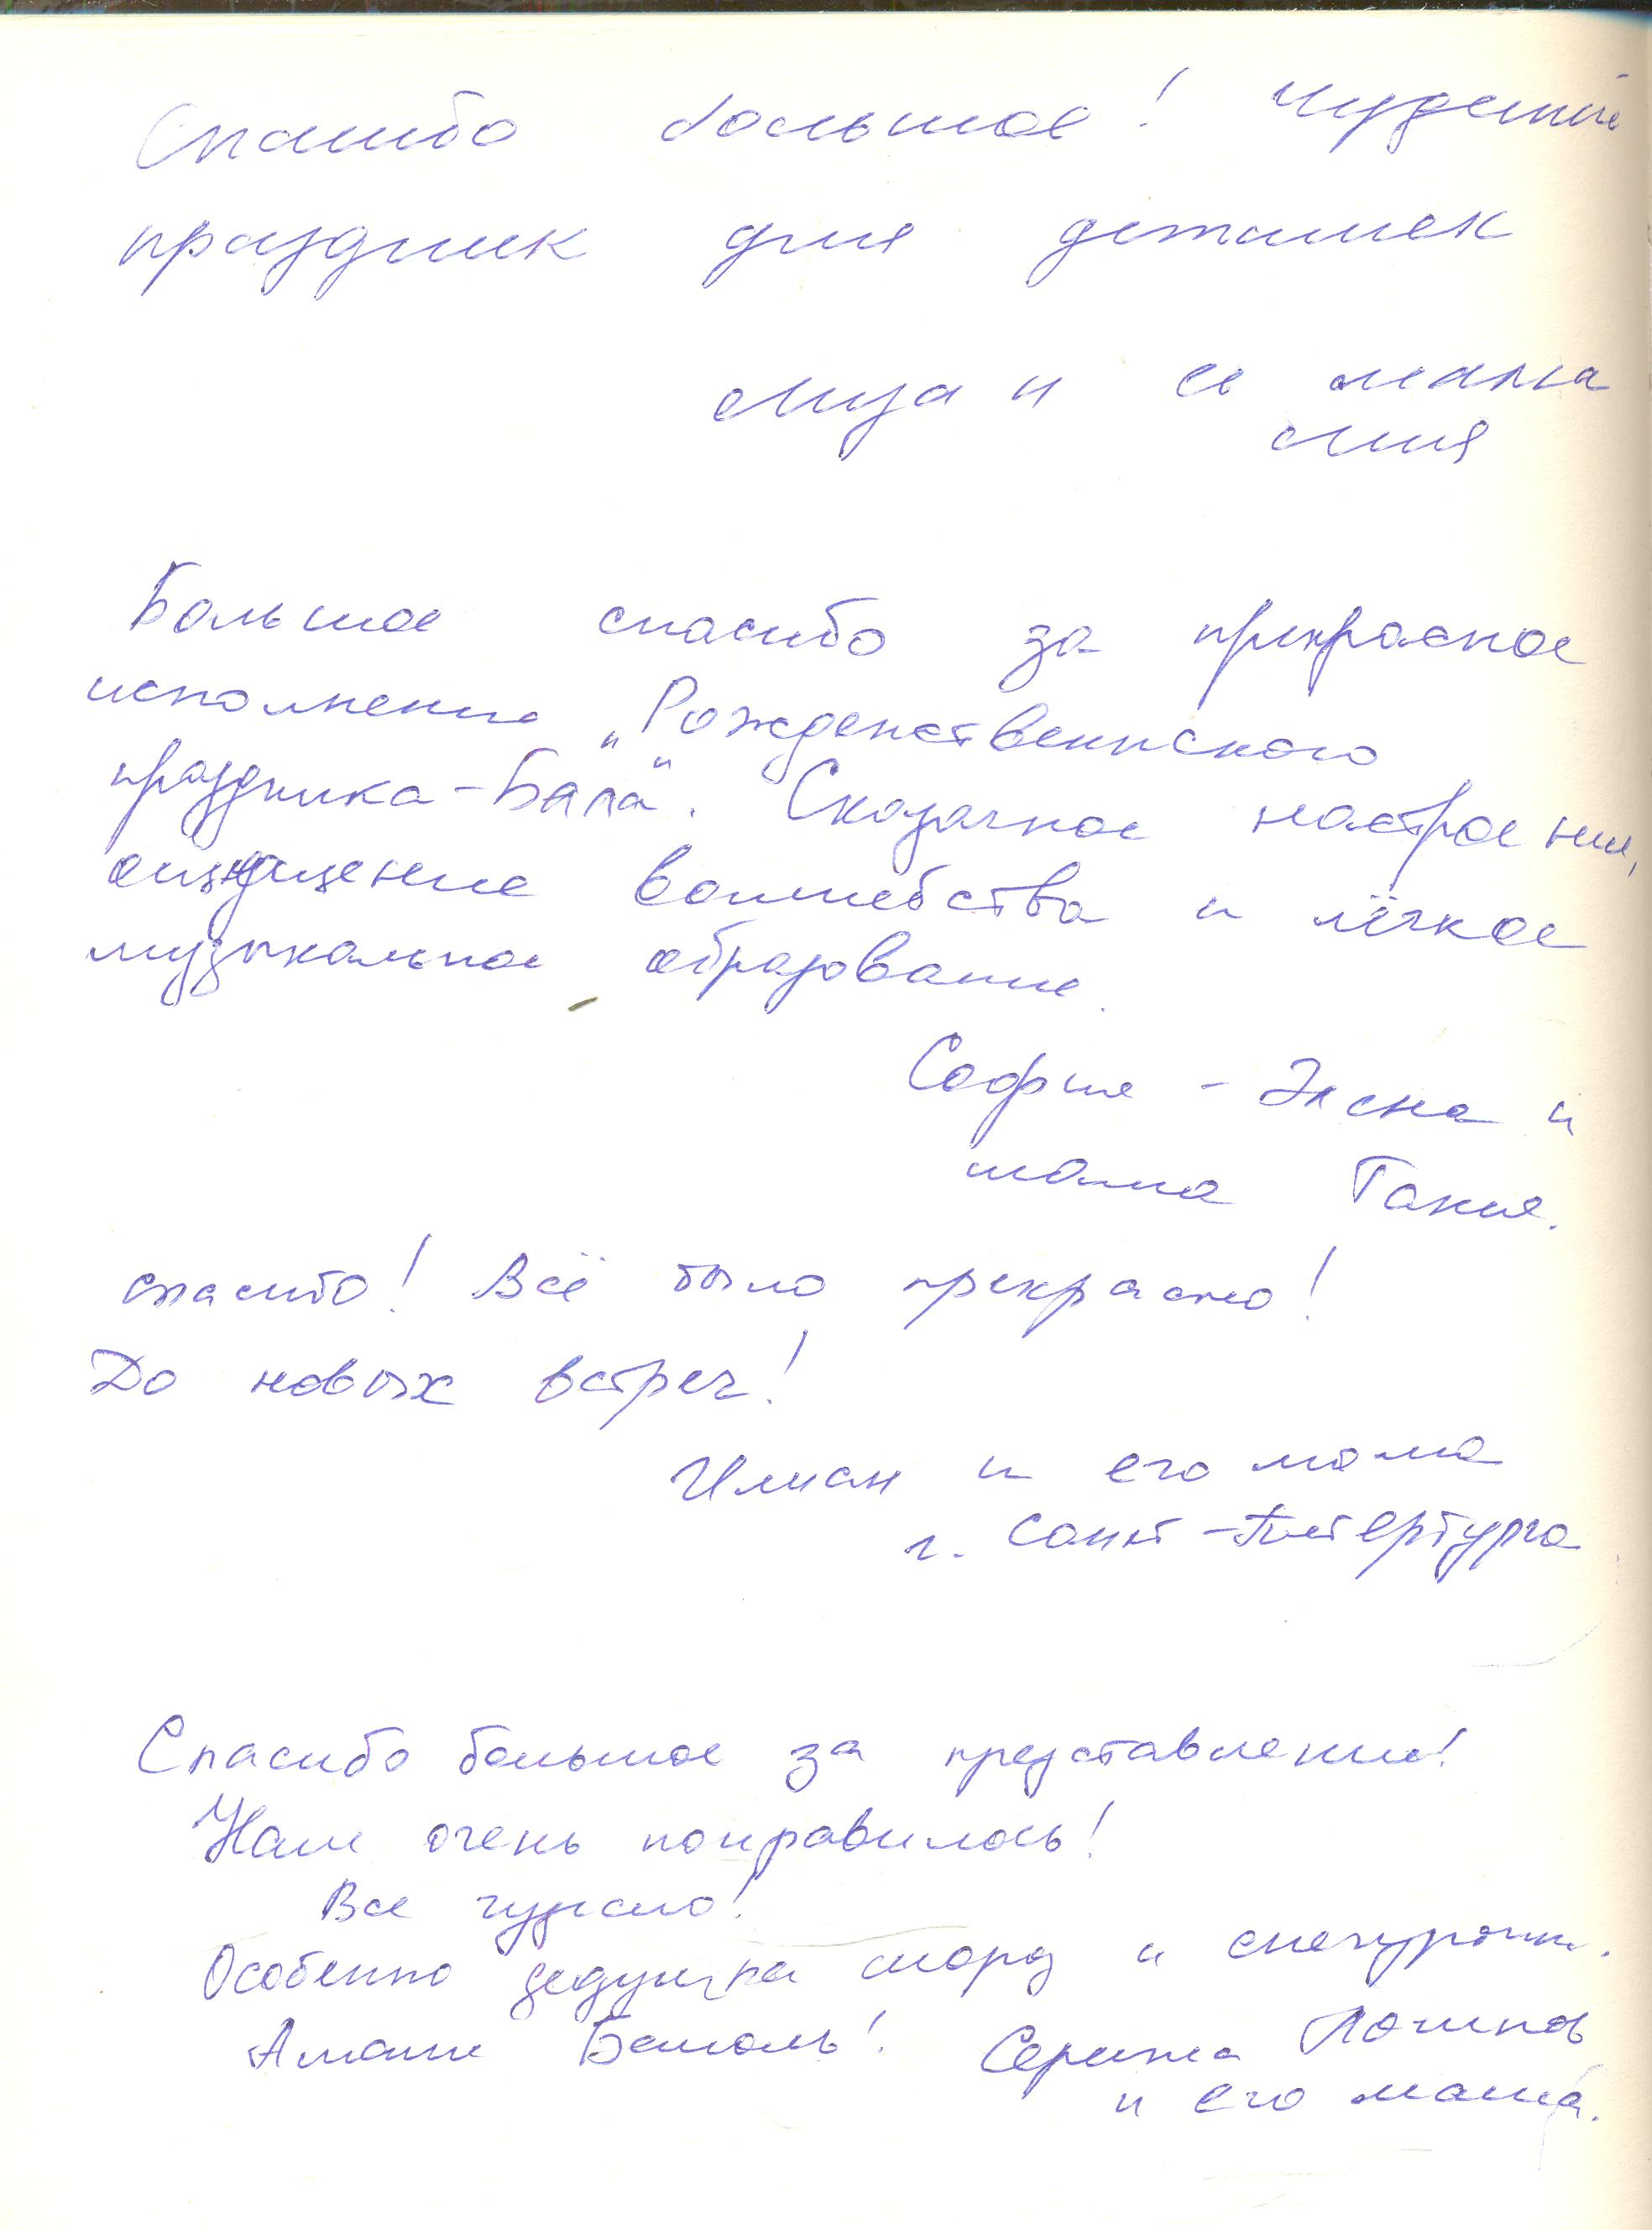 Спасибо большое! Чудесный
праздник для детишек
Лиза и ее мама
Лия
Большое спасибо за прекрасное
исполнение „Рожденственнского
праздника-Бала“. Сказочное настроение,
ощущение волшебства и лёгкое
музыкальное образование.
София - и
мама Таня.
спасибо! Всё было прекрасно!
До новых встреч!
и его мама
г. Санкт-Петербурга
Спасибо большое за представление!
Нам очень понравилось!
Все чудесно!
Особенно дедушка мороз и снегурочка.
Сережа
и его мама.